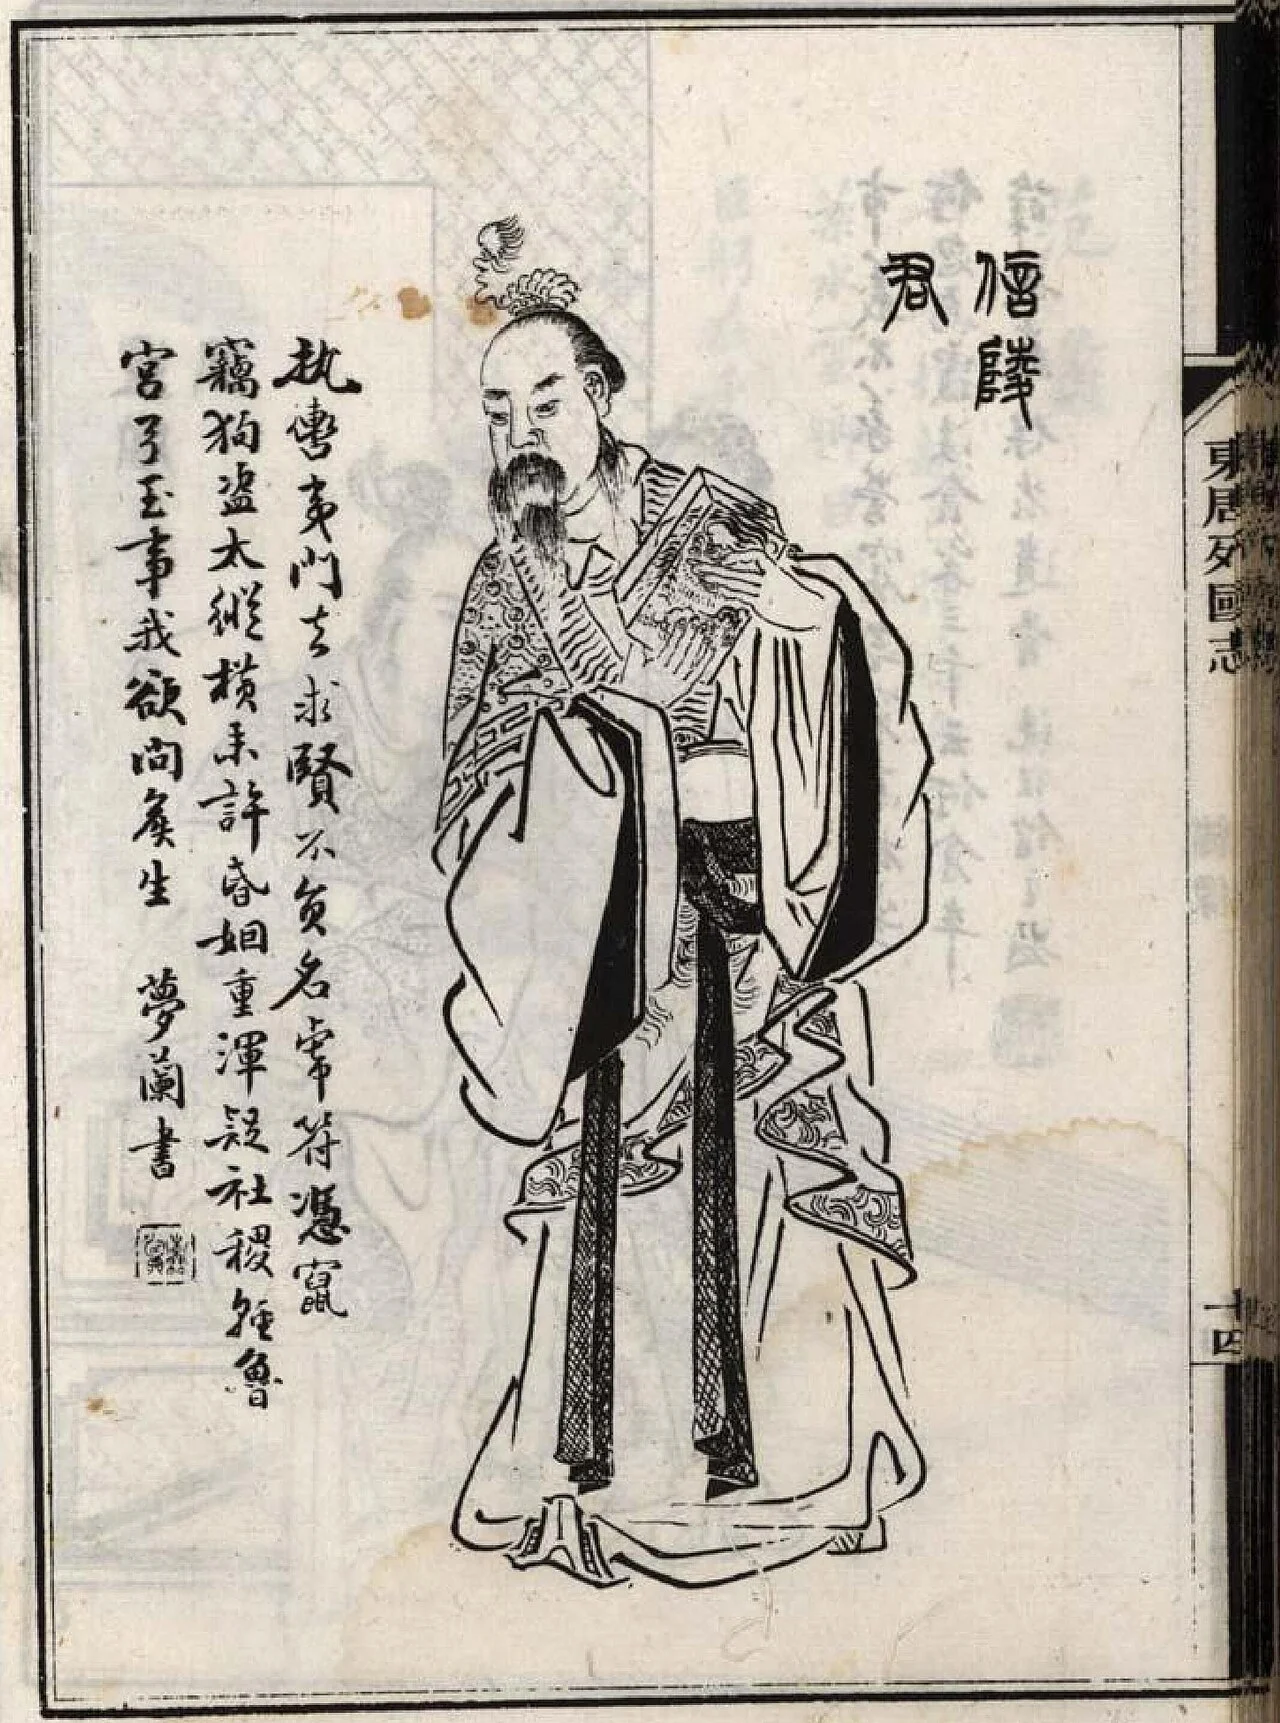 東周列國志
十四
信陵
君
執轡夷門去求賢不負名虎符憑竄
竊狗盜太縱橫未許昏姻重渾疑社稷輕魯
宮了玉事我欲問矦生 夢蘭書